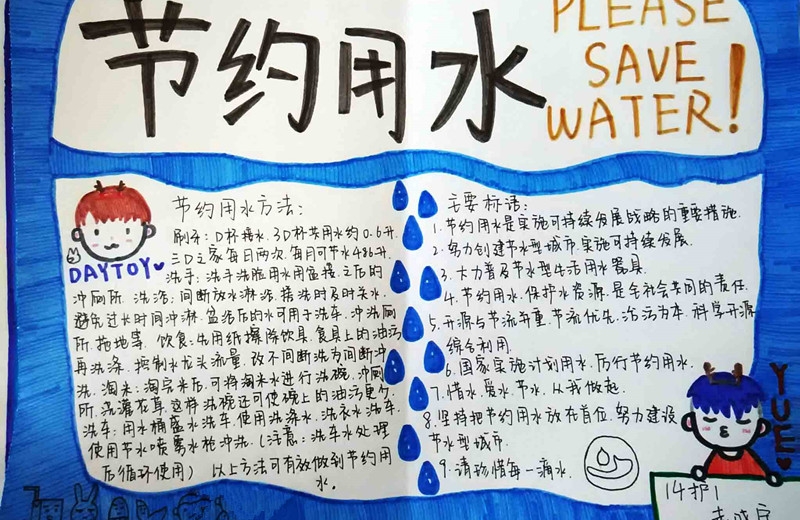 节约用水
PLEASE
SAVE
WATER!
节约用水方法:
刷牙:口杯接水.3口杯共用水约0.6升.
三口之家每日两次,每月可节水486升
洗手:洗手洗脸用水用盆接,之后的
冲厕所.洗浴:间断放水淋浴.搓洗时及时关水.
避免过长时间冲淋.盆浴后的水可用于洗车.冲洗厕
所.拖地等.饮食:先用纸擦除饮具.食具上的油污
再洗涤.控制水龙头流量,改不间断洗为间断冲
洗.淘米:淘完米后.可将淘米水进行洗碗.冲厕
所.浇灌花草.这样洗碗还可使碗上的油污更
洗车:用水桶盛水洗车.使用洗涤水.洗衣水洗车.
使用节水喷雾水枪冲洗.(注意:洗车水处理
后循环使用) 以上方法可有效做到节约用
水.
DAYTOY
主要标语:
1.节约用水是实施可持续发展战略的重要措施.
2.努力创建节水型城市.实施可持续发展.
3.大力普及节水型生活用水器具.
4.节约用水.保护水资源.是全社会共同的责任.
5.开源与节流并重.节流优先.治污为本.科学开源
综合利用.
6.国家实施计划用水.厉行节约用水.
7.惜水.爱水.节水.从我做起.
8.坚持把节约用水放在首位.努力建设
节水型城市.
9.请珍惜每一滴水.
YUE
14护1